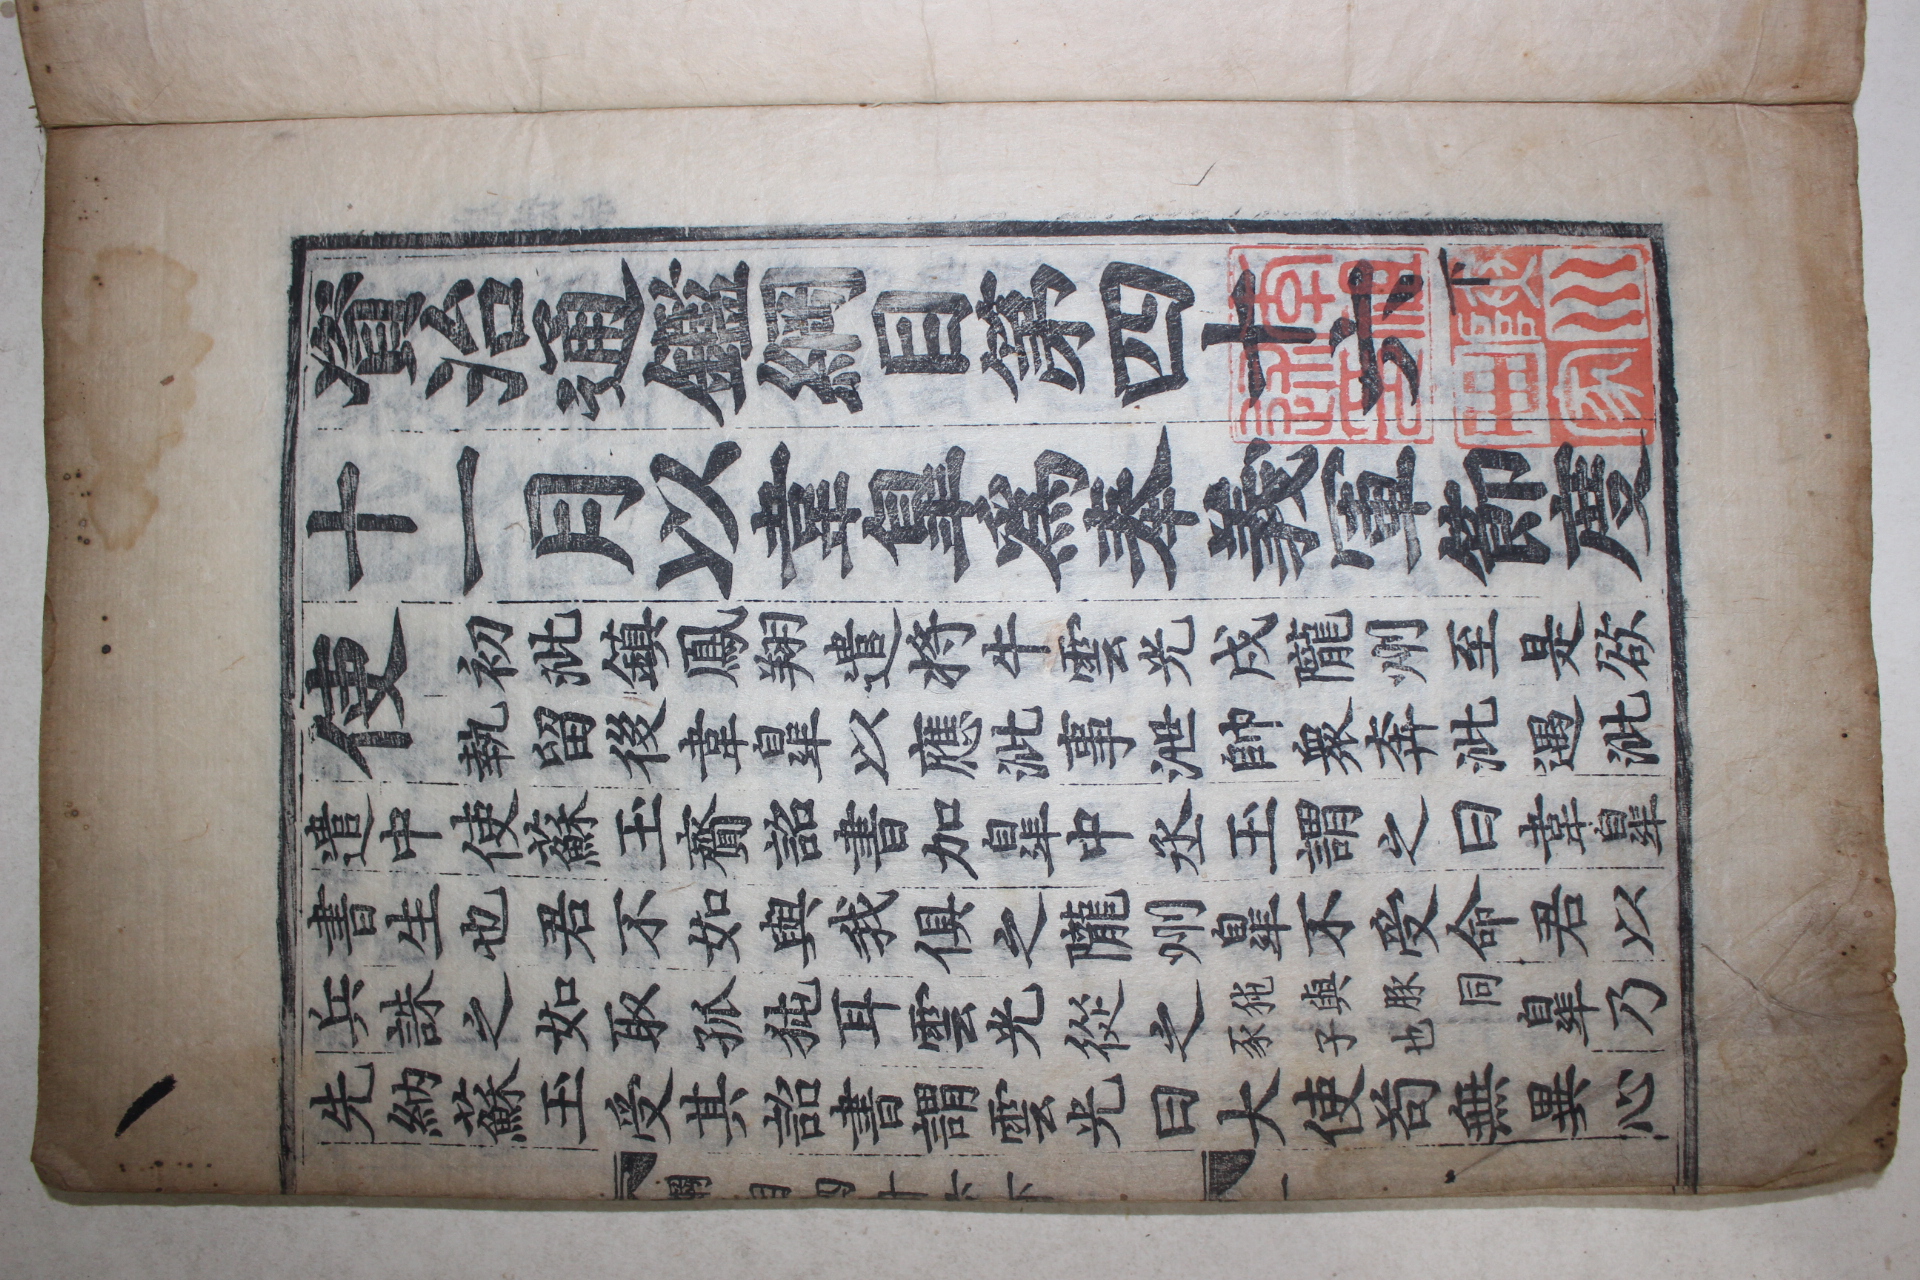 資治通鑑綱目第四十六下
十一月以韋皐爲奉義軍節度
使
初泚鎮鳳翔遣將牛雲光戍隴州至是欲
執留後韋皐以應泚事泄帥衆奔泚遇泚
遣中使蘇玉齎詔書加皐中丞玉謂之曰韋皐
書生也君不如與我俱之隴州皐不受命君以
兵誅之如取孤㹠耳雲光從之㹠與豚同豕子也皐乃
先納蘇玉受其詔書謂雲光曰大使苟無異心
綱目四十六下
一